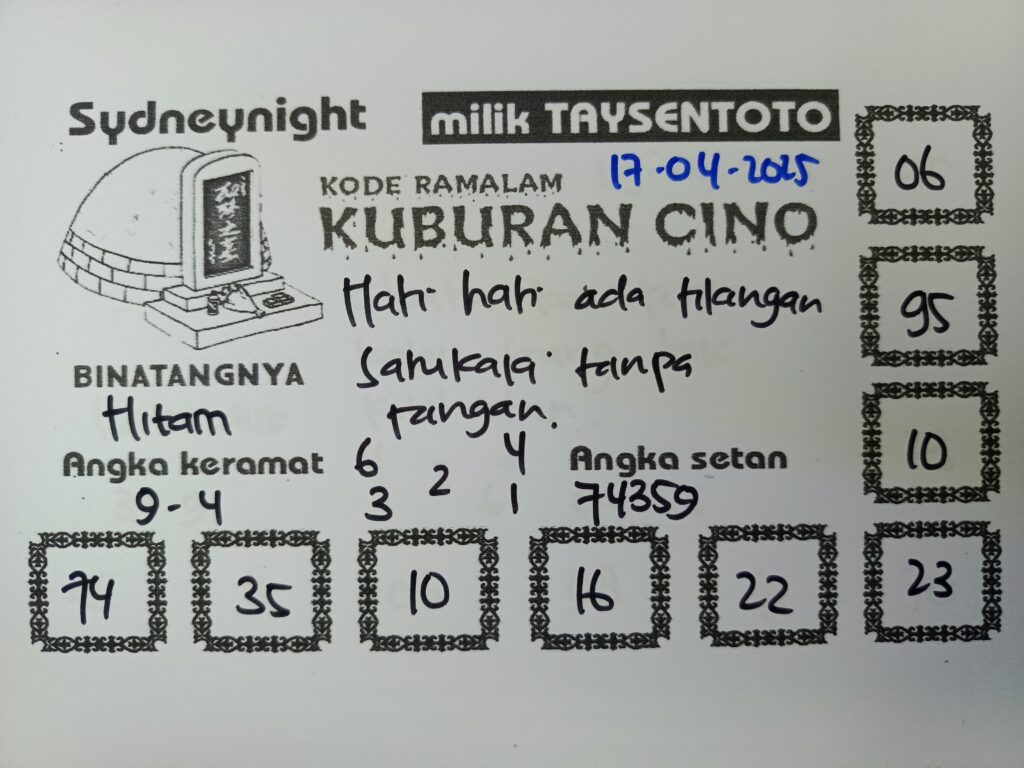 Sydneynight
milik TAYSENTOTO
17-04-2025
KODE RAMALAM
KUBURAN CINO
Hati-hati ada tilangan
Satukaki tanpa
tangan.
BINATANGNYA
Hitam
Angka keramat
9-4
6 4
2
3 1
Angka setan
74359
06
95
10
23
74 35 10 16 22